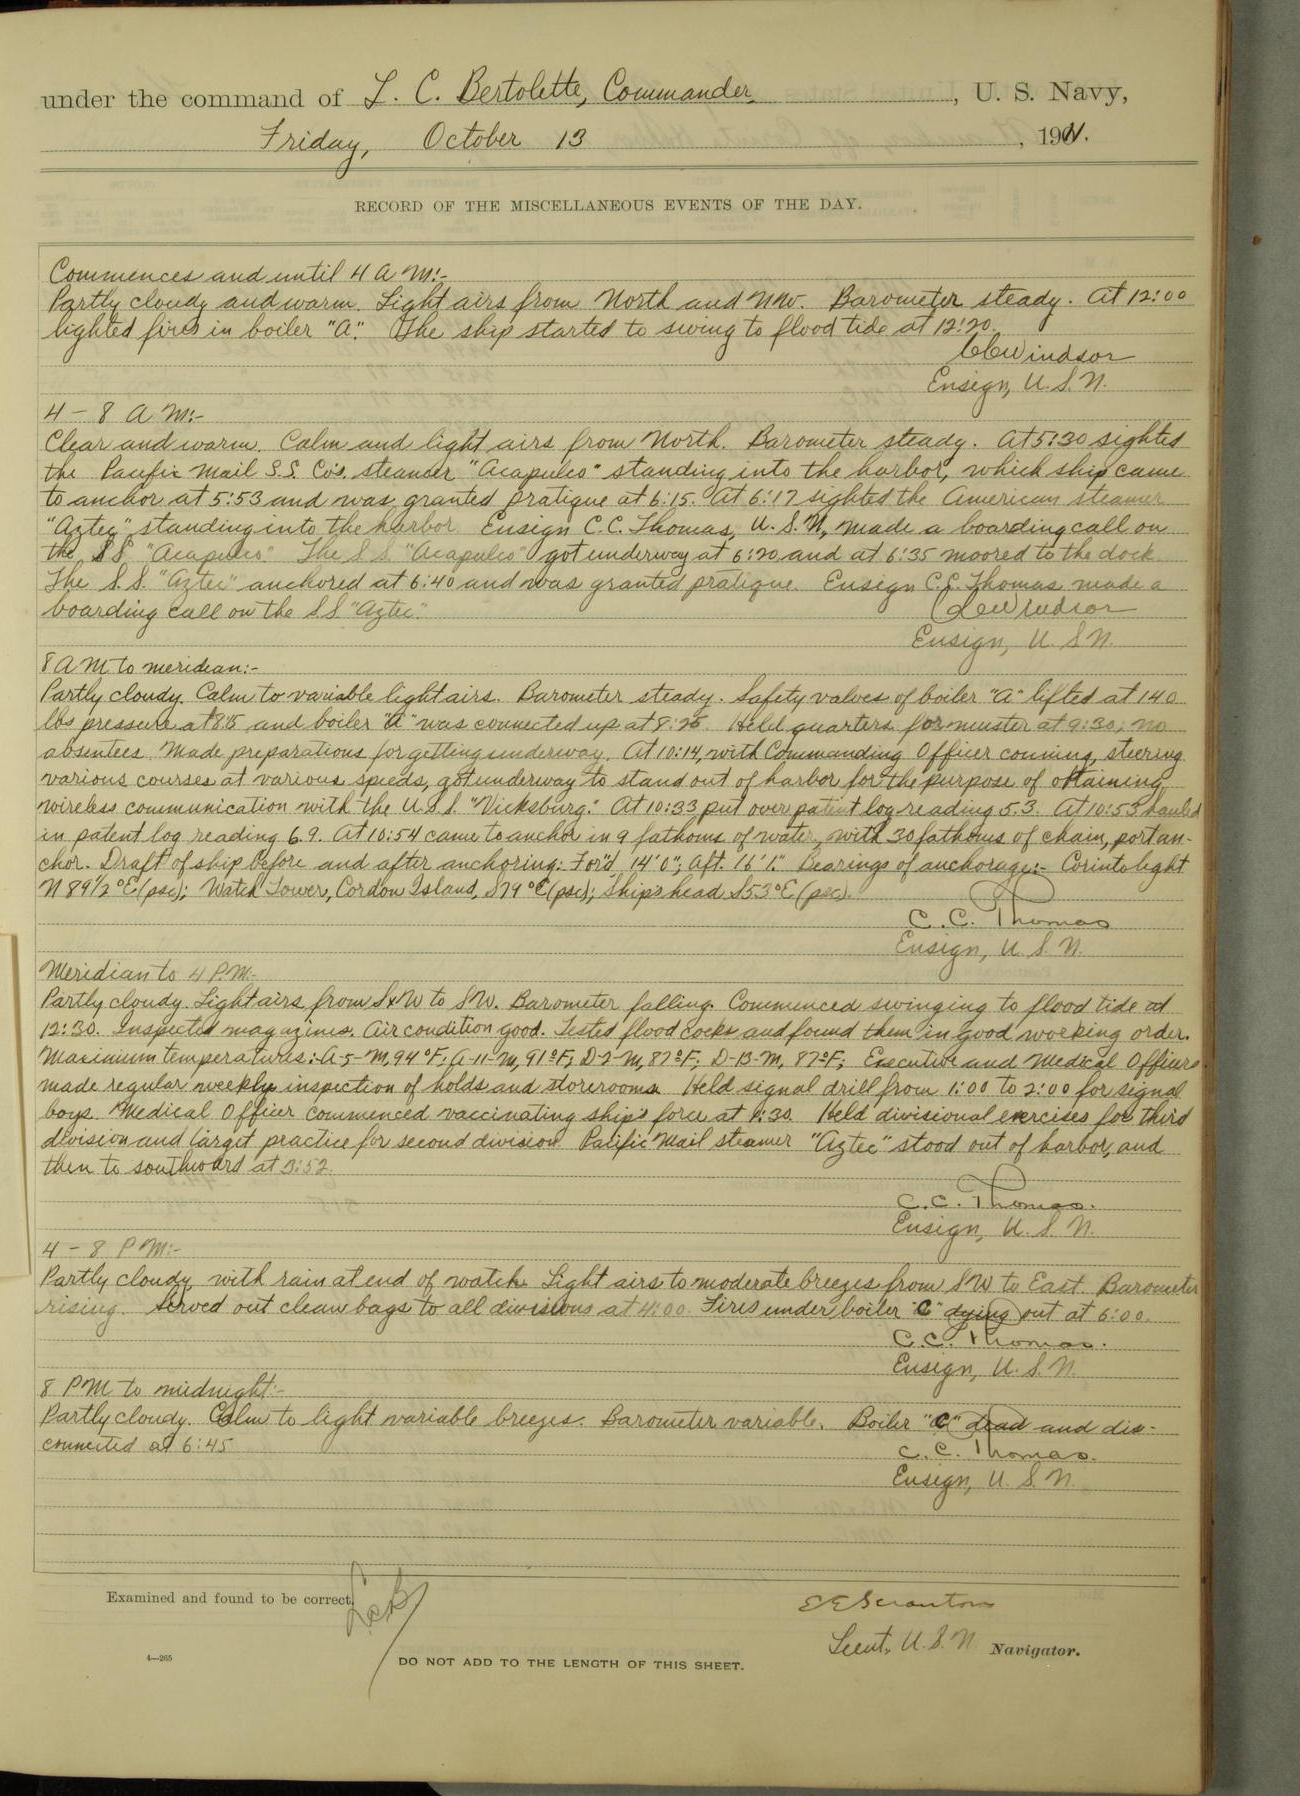 under the command of L. C. Bertolette, Commander, U. S. Navy,
Friday, October 13, 1911.
RECORD OF THE MISCELLANEOUS EVENTS OF THE DAY.
Commences and until 4 A M:-
Partly cloudy and warm. Light airs from North and NNW. Barometer steady. At 12:00
lighted fires in boiler "A". The ship started to swing to flood tide at 12:20.
Windsor
Ensign, U. S. N.
4 - 8 A M:-
Clear and warm. Calm and light airs from North. Barometer steady. At 5:30 sighted
the Pacific Mail S.S. Co's. steamer "Acapulco" standing into the harbor, which ship came
to anchor at 5:53 and was granted pratique at 6:15. At 6:17 sighted the American steamer
"Aztec" standing into the harbor. Ensign C. C. Thomas, U. S. N, made a boarding call on
the S.S. "Acapulco" The S.S. "Acapulco" got underway at 6:20 and at 6:35 moored to the dock.
The S.S. "Aztec" anchored at 6:40 and was granted pratique. Ensign C.C. Thomas made a
boarding call on the S.S. "Aztec".
Windsor
Ensign, U. S N.
8 A M to meridian:-
Partly cloudy. Calm to variable light airs. Barometer steady. Safety valves of boiler "A" lifted at 140
lbs pressure at 8:15 and boiler "A" was connected up at 8:25. Held quarters for muster at 9:30; no
absentees. Made preparations for getting underway. At 10:14, with Commanding Officer conning, steering
various courses at various speeds, got underway to stand out of harbor for the purpose of obtaining
wireless communication with the U.S.S. "Vicksburg." At 10:33 put over patent log reading 5.3. At 10:53 hauled
in patent log reading 6.9. At 10:54 came to anchor in 9 fathoms of water, with 30 fathoms of chain, port an-
chor. Draft of ship before and after anchoring: For'd, 14' 0"; Aft. 16' 1". Bearings of anchorage:- Corinto light
N 89 1/2° E (psc); Watch Tower, Cordon Island, S 79° E (psc); Ship's head S 53° E (psc).
C. C. Thomas
Ensign, U. S. N.
Meridian to 4 P.M:-
Partly cloudy. Light airs from SxW to SW. Barometer falling. Commenced swinging to flood tide at
12:30. Inspected magazines. Air condition good. Tested flood cocks and found them in good working order.
Maximum temperatures:- A-5-M, 94°F; A-11-M, 91°F; D-2-M, 87°F; D-13-M, 87°F; Executive and Medical Officers
made regular weekly inspection of holds and storerooms. Held signal drill from 1:00 to 2:00 for signal
boys. Medical Officer commenced vaccinating ship's force at 1:30. Held divisional exercises for third
division and target practice for second division. Pacific Mail steamer "Aztec" stood out of harbor, and
then to southward at 3:52.
C. C. Thomas.
Ensign, U. S. N.
4 - 8 P M:-
Partly cloudy with rain at end of watch. Light airs to moderate breezes from SW to East. Barometer
rising. Served out clean bags to all divisions at 4:00. Fires under boiler "C" dying out at 6:00.
C. C. Thomas.
Ensign, U. S. N.
8 PM to midnight:-
Partly cloudy. Calm to light variable breezes. Barometer variable. Boiler "C" dead and dis-
connected at 6:45
C. C. Thomas.
Ensign, U. S. N.
Examined and found to be correct.
L.C.B
E E Scranton
Lieut. U. S. N. Navigator.
4—265
DO NOT ADD TO THE LENGTH OF THIS SHEET.